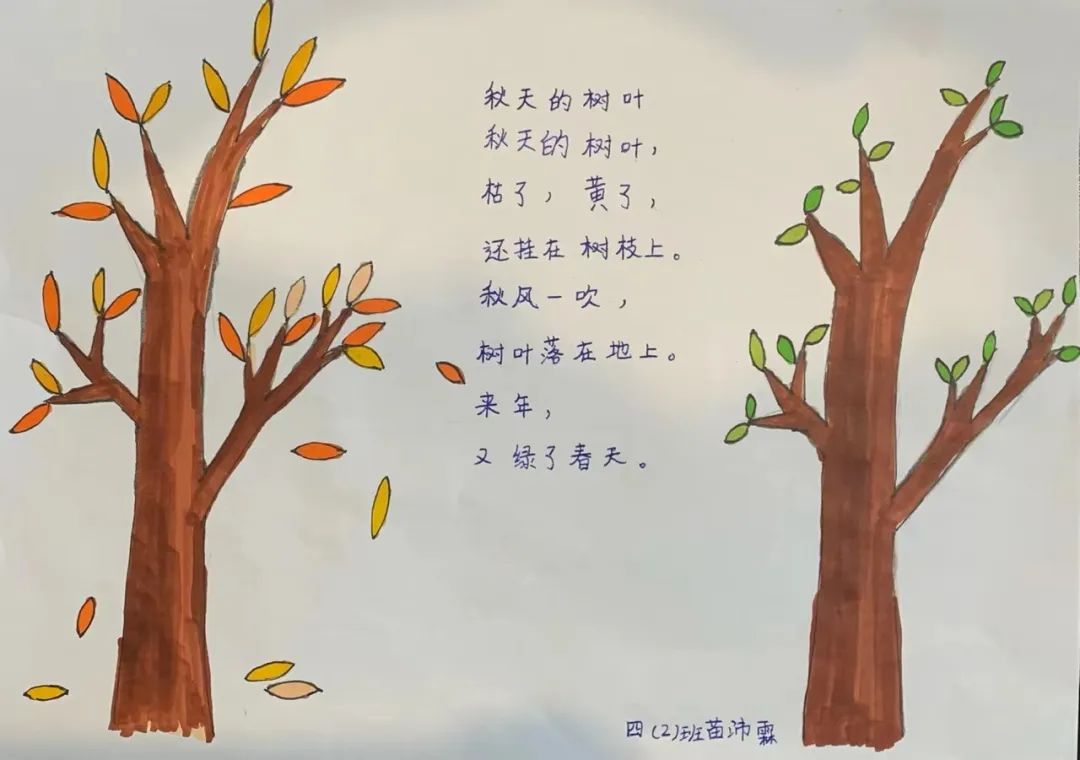 秋天的树叶
秋天的树叶，
枯了，黄了，
还挂在树枝上。
秋风一吹，
树叶落在地上。
来年，
又绿了春天。
四(2)班苗沛霖